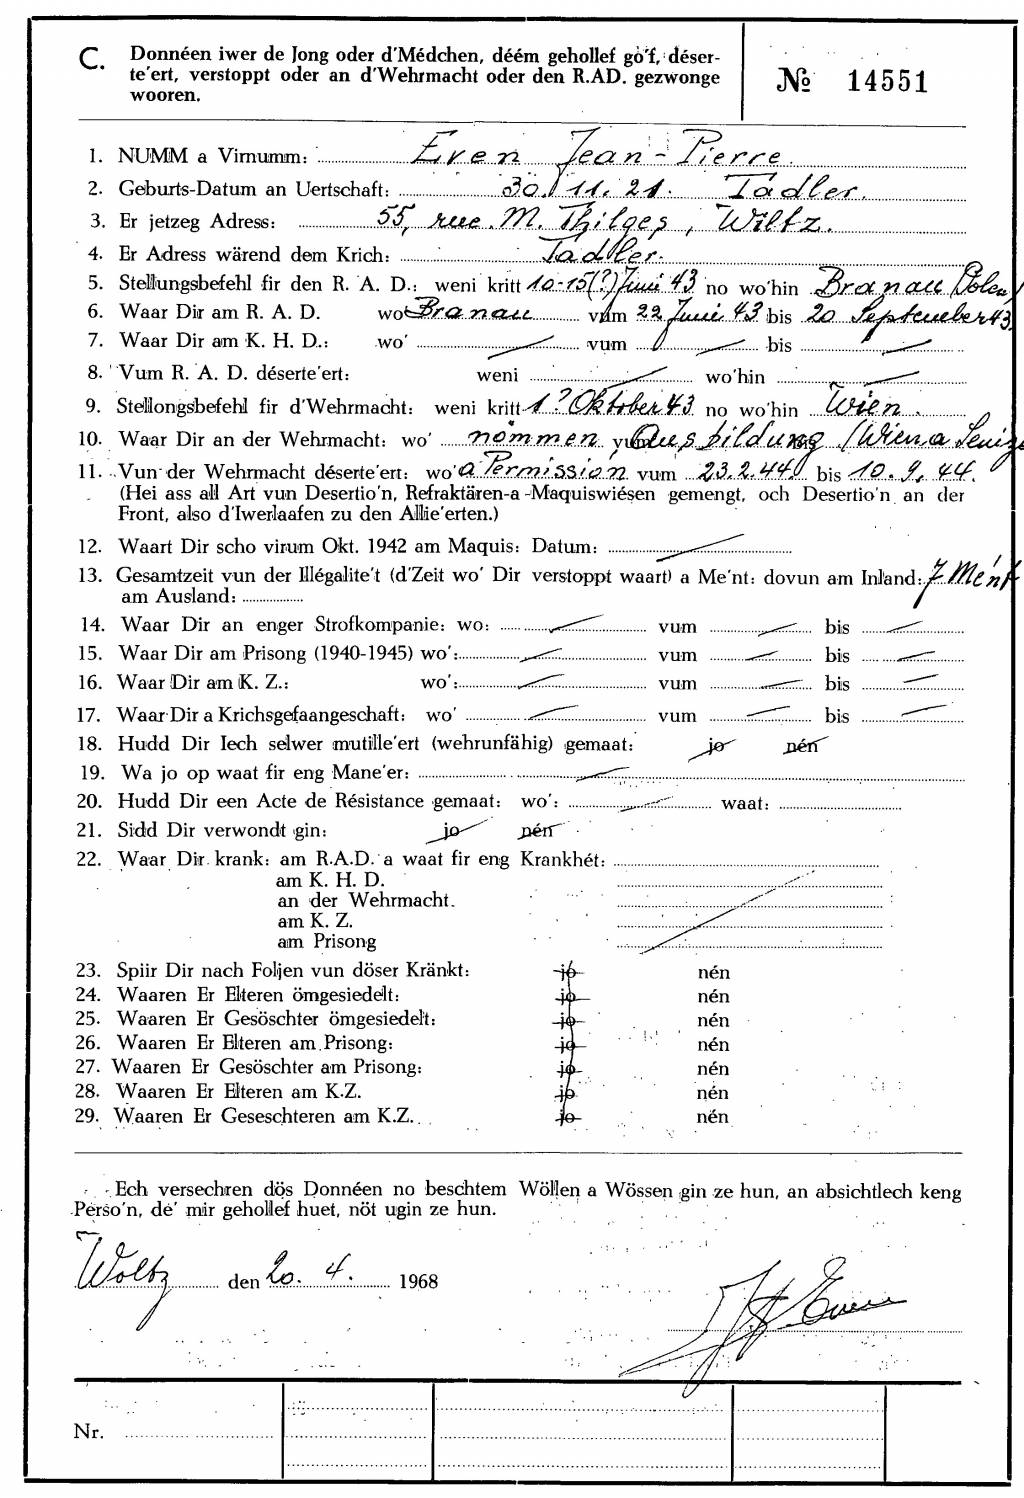 C. Donnéen iwer de Jong oder d'Médchen, déém gehollef go'f, déser-
te'ert, verstoppt oder an d'Wehrmacht oder den R.AD. gezwonge
wooren.
№ 14551
1. NUMM a Virnumm: Even Jean-Pierre.
2. Geburts-Datum an Uertschaft: 30.11.21. Tadler.
3. Er jetzeg Adress: 55, rue M. Thilges, Wiltz.
4. Er Adress wärend dem Krich: Tadler.
5. Stellungsbefehl fir den R. A. D.: weni kritt 10-15(?) Juni 43 no wo'hin Branau (Polen)
6. Waar Dir am R. A. D. wo' Branau vum 22 Juni 43 bis 20 September 43.
7. Waar Dir am K. H. D.: wo' vum bis
8. Vum R. A. D. déserte'ert: weni wo'hin
9. Stellongsbefehl fir d'Wehrmacht: weni kritt 1? Oktober 43 no wo'hin Wien.
10. Waar Dir an der Wehrmacht: wo' nömmen Ausbildung (Wien a
11. Vun der Wehrmacht déserte'ert: wo' a Permission vum 23.2.44 bis 10.9.44.
(Hei ass all Art vun Desertio'n, Refraktären-a-Maquiswiésen gemengt, och Desertio'n an der
Front, also d'Iwerlaafen zu den Allie'erten.)
12. Waart Dir scho virum Okt. 1942 am Maquis: Datum:
13. Gesamtzeit vun der Illégalite't (d'Zeit wo' Dir verstoppt waart) a Me'nt: dovun am Inland: 7 Mént
am Ausland:
14. Waar Dir an enger Strofkompanie: wo: vum bis
15. Waar Dir am Prisong (1940-1945) wo': vum bis
16. Waar Dir am K. Z.: wo': vum bis
17. Waar Dir a Krichsgefaangeschaft: wo' vum bis
18. Hudd Dir Iech selwer mutille'ert (wehrunfähig) gemaat: jo nén
19. Wa jo op waat fir eng Mane'er:
20. Hudd Dir een Acte de Résistance gemaat: wo': waat:
21. Sidd Dir verwondt gin: jo nén
22. Waar Dir krank: am R.A.D. a waat fir eng Krankhét:
am K. H. D.
an der Wehrmacht.
am K. Z.
am Prisong
23. Spiir Dir nach Foljen vun döser Kränkt: jo nén
24. Waaren Er Elteren ömgesiedelt: jo nén
25. Waaren Er Gesöschter ömgesiedelt: jo nén
26. Waaren Er Elteren am Prisong: jo nén
27. Waaren Er Gesöschter am Prisong: jo nén
28. Waaren Er Elteren am K.Z. jo nén
29. Waaren Er Geseschteren am K.Z. jo nén
Ech versechren dös Donnéen no beschtem Wöllen a Wössen gin ze hun, an absichtlech keng
Perso'n, de' mir gehollef huet, nöt ugin ze hun.
Woltz den 20. 4. 1968
Even
Nr.